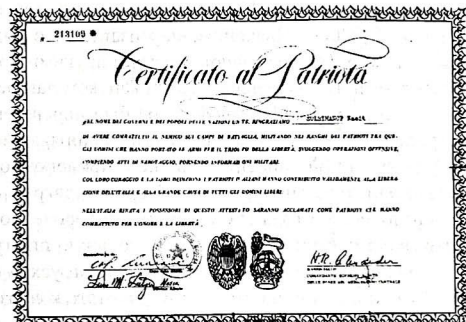 213109
Certificato al Patriota
NEL NOME DEI GOVERNI E DEI POPOLI DELLE NAZIONI UNITE, RINGRAZIAMO
DI AVERE COMBATTUTO IL NEMICO SUI CAMPI DI BATTAGLIA, MILITANDO NEI RANGHI DEI PATRIOTI TRA QUE-
GLI UOMINI CHE HANNO PORTATO LE ARMI PER IL TRIONFO DELLA LIBERTÀ, SVOLGENDO OPERAZIONI OFFENSIVE,
COMPIENDO ATTI DI SABOTAGGIO, FORNENDO INFORMAZIONI MILITARI.
COL LORO CORAGGIO E LA LORO DEDIZIONE I PATRIOTI ITALIANI HANNO CONTRIBUITO VALIDAMENTE ALLA LIBERA-
ZIONE DELL'ITALIA E ALLA GRANDE CAUSA DI TUTTI GLI UOMINI LIBERI.
NELL'ITALIA RINATA I POSSESSORI DI QUESTO ATTESTATO SARANNO ACCLAMATI COME PATRIOTI CHE HANNO
COMBATTUTO PER L'ONORE E LA LIBERTÀ.
H.R. Alexander